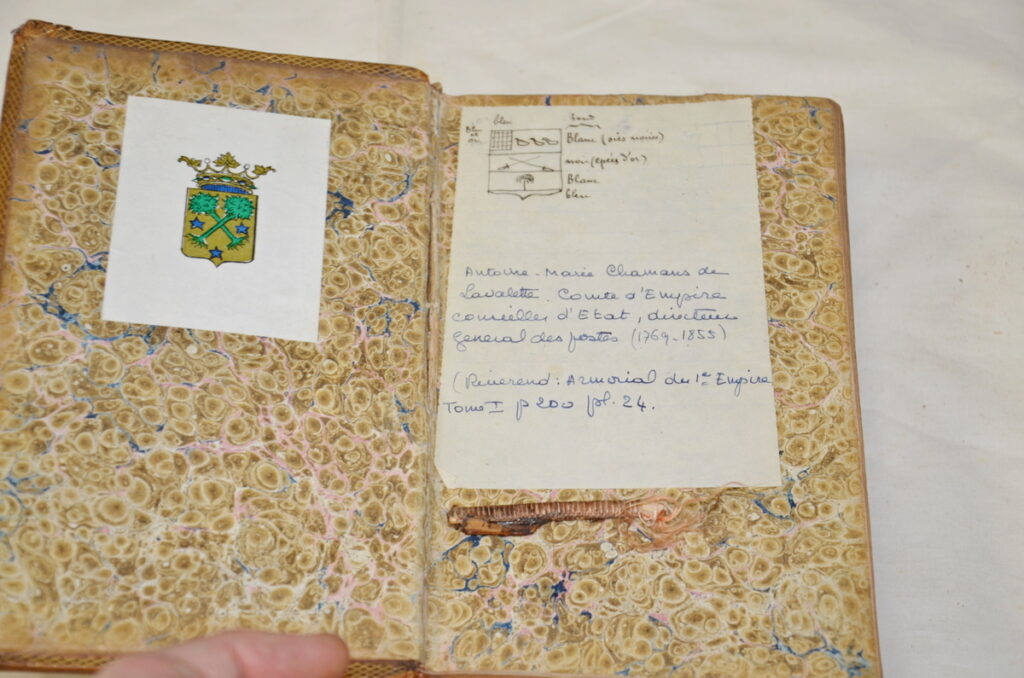 bleu fond
Bleu et or Blanc (oies noires)
noir (épées d'or)
Blanc
bleu
Antoine-Marie Chamans de
Lavalette. Comte d'Empire
conseiller d'Etat, directeur
general des postes (1769-1855)
(Reverend: Armorial du 1er Empire
Tome I p 200 pl. 24.